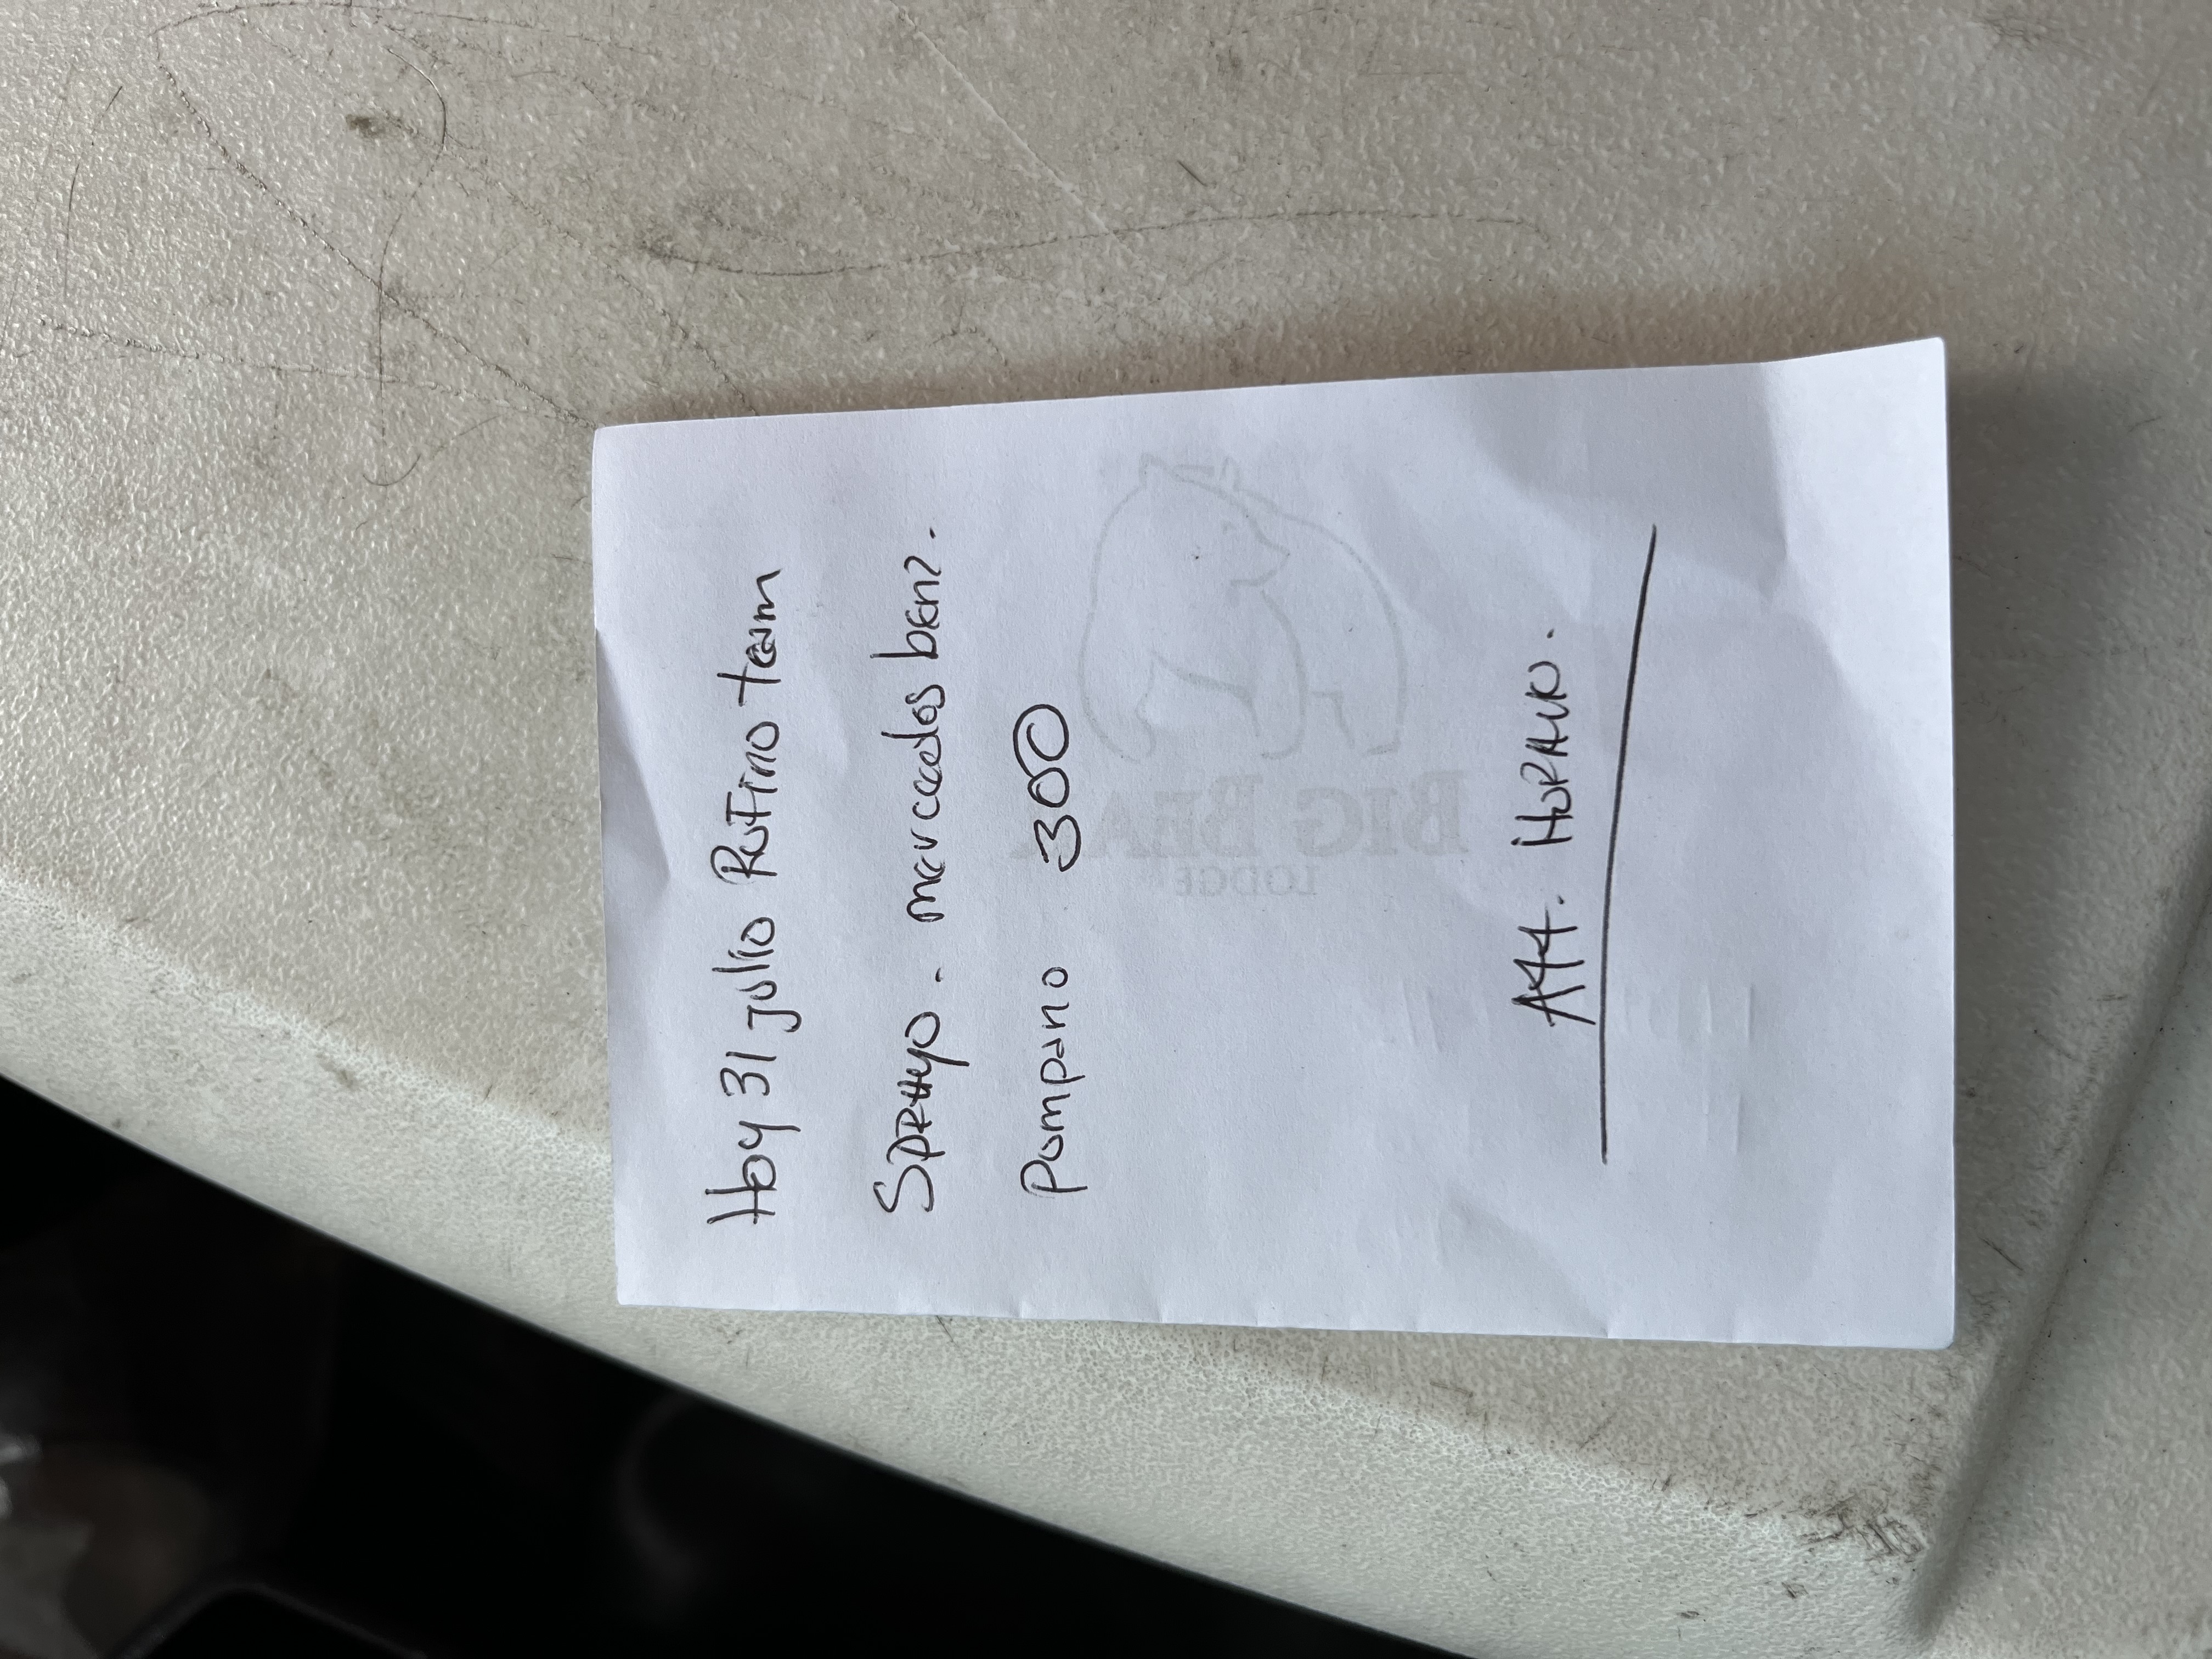 Hoy 31 julio Rufino team
Sprayo. mercedes benz.
Pompano 300
Att. Horacio.
BIG BEAR
LODGE